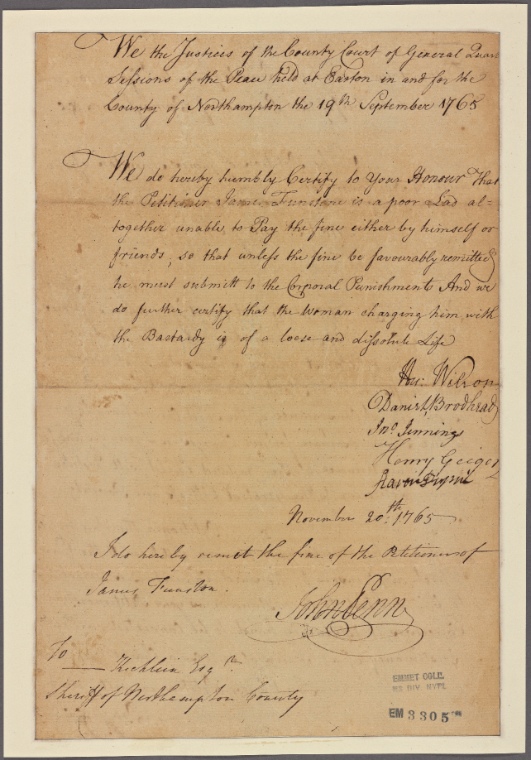 We the Justices of the County Court of General Quar
Sessions of the Peace held at Easton in and for the
County of Northampton the 19th September 1765
We do hereby humbly Certify to Your Honour That
the Petitioner James Funstone is a poor Lad al-
together unable to Pay the fine either by himself or
friends, so that unless the fine be favourably remitted
he must submitt to the Corporal Punishment And we
do further certify that the Woman charging him with
the Bastardy is of a loose and dissolute Life
Hu: Wilson
Daniel Brodhead
Jno Jennings
Henry Geiger
November 20th: 1765
I do hereby remit the fine of the Petitioner of
James Funston
John Penn
To
Kichlein Esqr
Sheriff of Northampton County
EMMET COLL.
MS DIV. NYPL
EM 3305